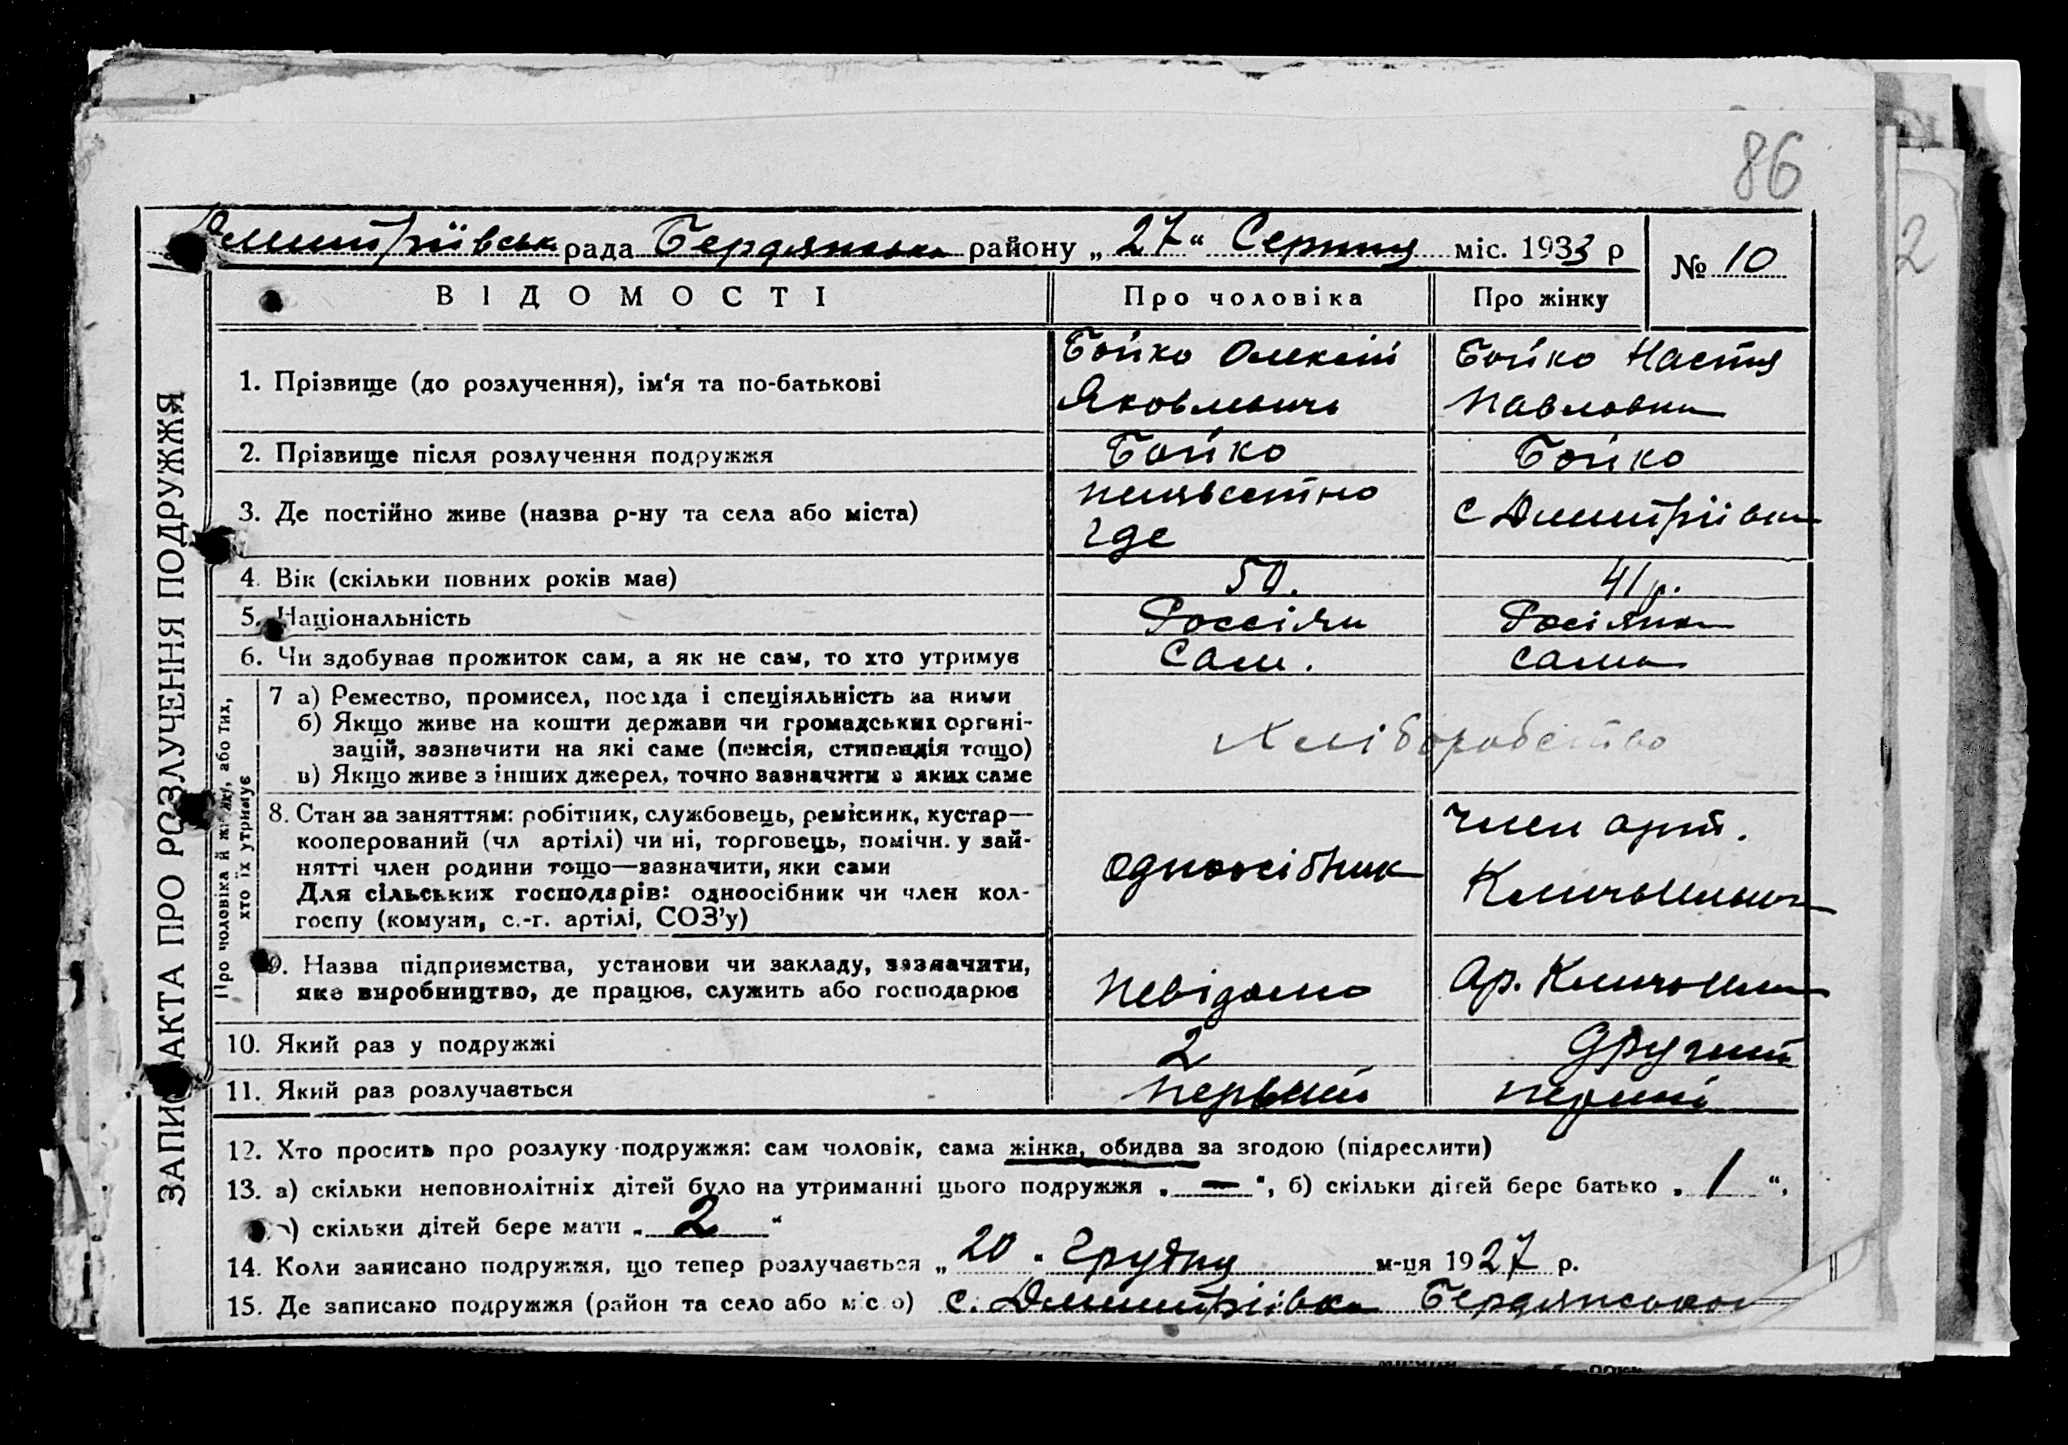 86
Дмитріївськ рада Бердянсько району „27“ Серпня міс. 1933 р
№ 10
2
ЗАПИС АКТА ПРО РОЗЛУЧЕННЯ ПОДРУЖЖЯ
ВІДОМОСТІ Про чоловіка Про жінку
1. Прізвище (до розлучення), ім'я та по-батькові
Бойко Олексій
Яковлевичь
Бойко Настя
Павловна
2. Прізвище після розлучення подружжя Бойко Бойко
3. Де постійно живе (назва р-ну та села або міста)
неизвестно
где
с Дмитріївка
4. Вік (скільки повних років має) 50. 41 р.
5. Національність Россіян Росіянка
6. Чи здобував прожиток сам, а як не сам, то хто утримує Сам. сама
Про чоловіка й жінку, або тих,
хто їх утримує
7 а) Ремество, промисел, посада і спеціяльність за ними
б) Якщо живе на кошти держави чи громадських органі-
зацій, зазначити на які саме (пенсія, стипендія тощо)
в) Якщо живе з інших джерел, точно зазначити з яких саме
Хліборобство
8. Стан за заняттям: робітник, службовець, ремісник, кустар—
кооперований (чл артілі) чи ні, торговець, помічн. у зай-
нятті член родини тощо—зазначити, яки сами
Для сільських господарів: одноосібник чи член кол-
госпу (комуни, с.-г. артілі, СОЗ'у)
одноосібник
член арт.
9. Назва підприємства, установи чи закладу, зазначити,
яке виробництво, де працює, служить або господарює
Невідомо
Ар.
10. Який раз у подружжі 2 другий
11. Який раз розлучається первий перший
12. Хто просить про розлуку подружжя: сам чоловік, сама жінка, обидва за згодою (підреслити)
13. а) скільки неповнолітніх дітей було на утриманні цього подружжя „ — “, б) скільки дітей бере батько „ 1 “,
в) скільки дітей бере мати „ 2 “
14. Коли записано подружжя, що тепер розлучається „ 20 “ Грудня м-ця 1927 р.
15. Де записано подружжя (район та село або місто) с. Дмитріївка Бердянського